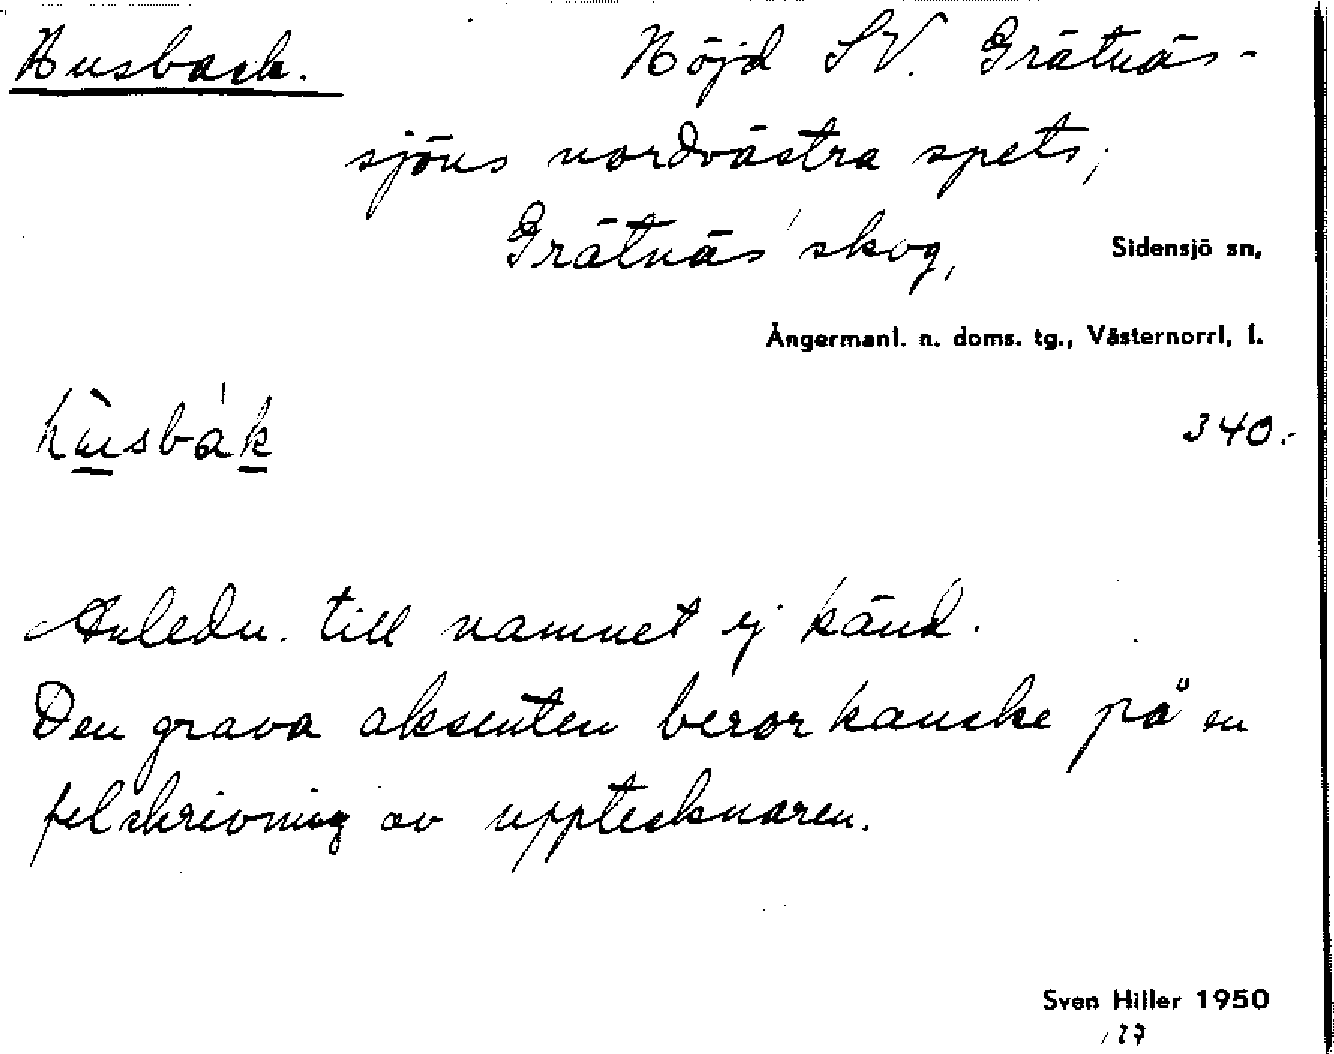 Husback. Höjd SV. Grätnäs-
sjöns nordvästra spets;
Grätnäs skog, Sidensjö sn,
Ångermanl. n. doms. tg., Västernorrl, l.
hùsbák 340.-
Anledn. till namnet ej känd.
Den grava aksenten beror kanske på en
felskrivning av upptecknaren.
Sven Hiller 1950